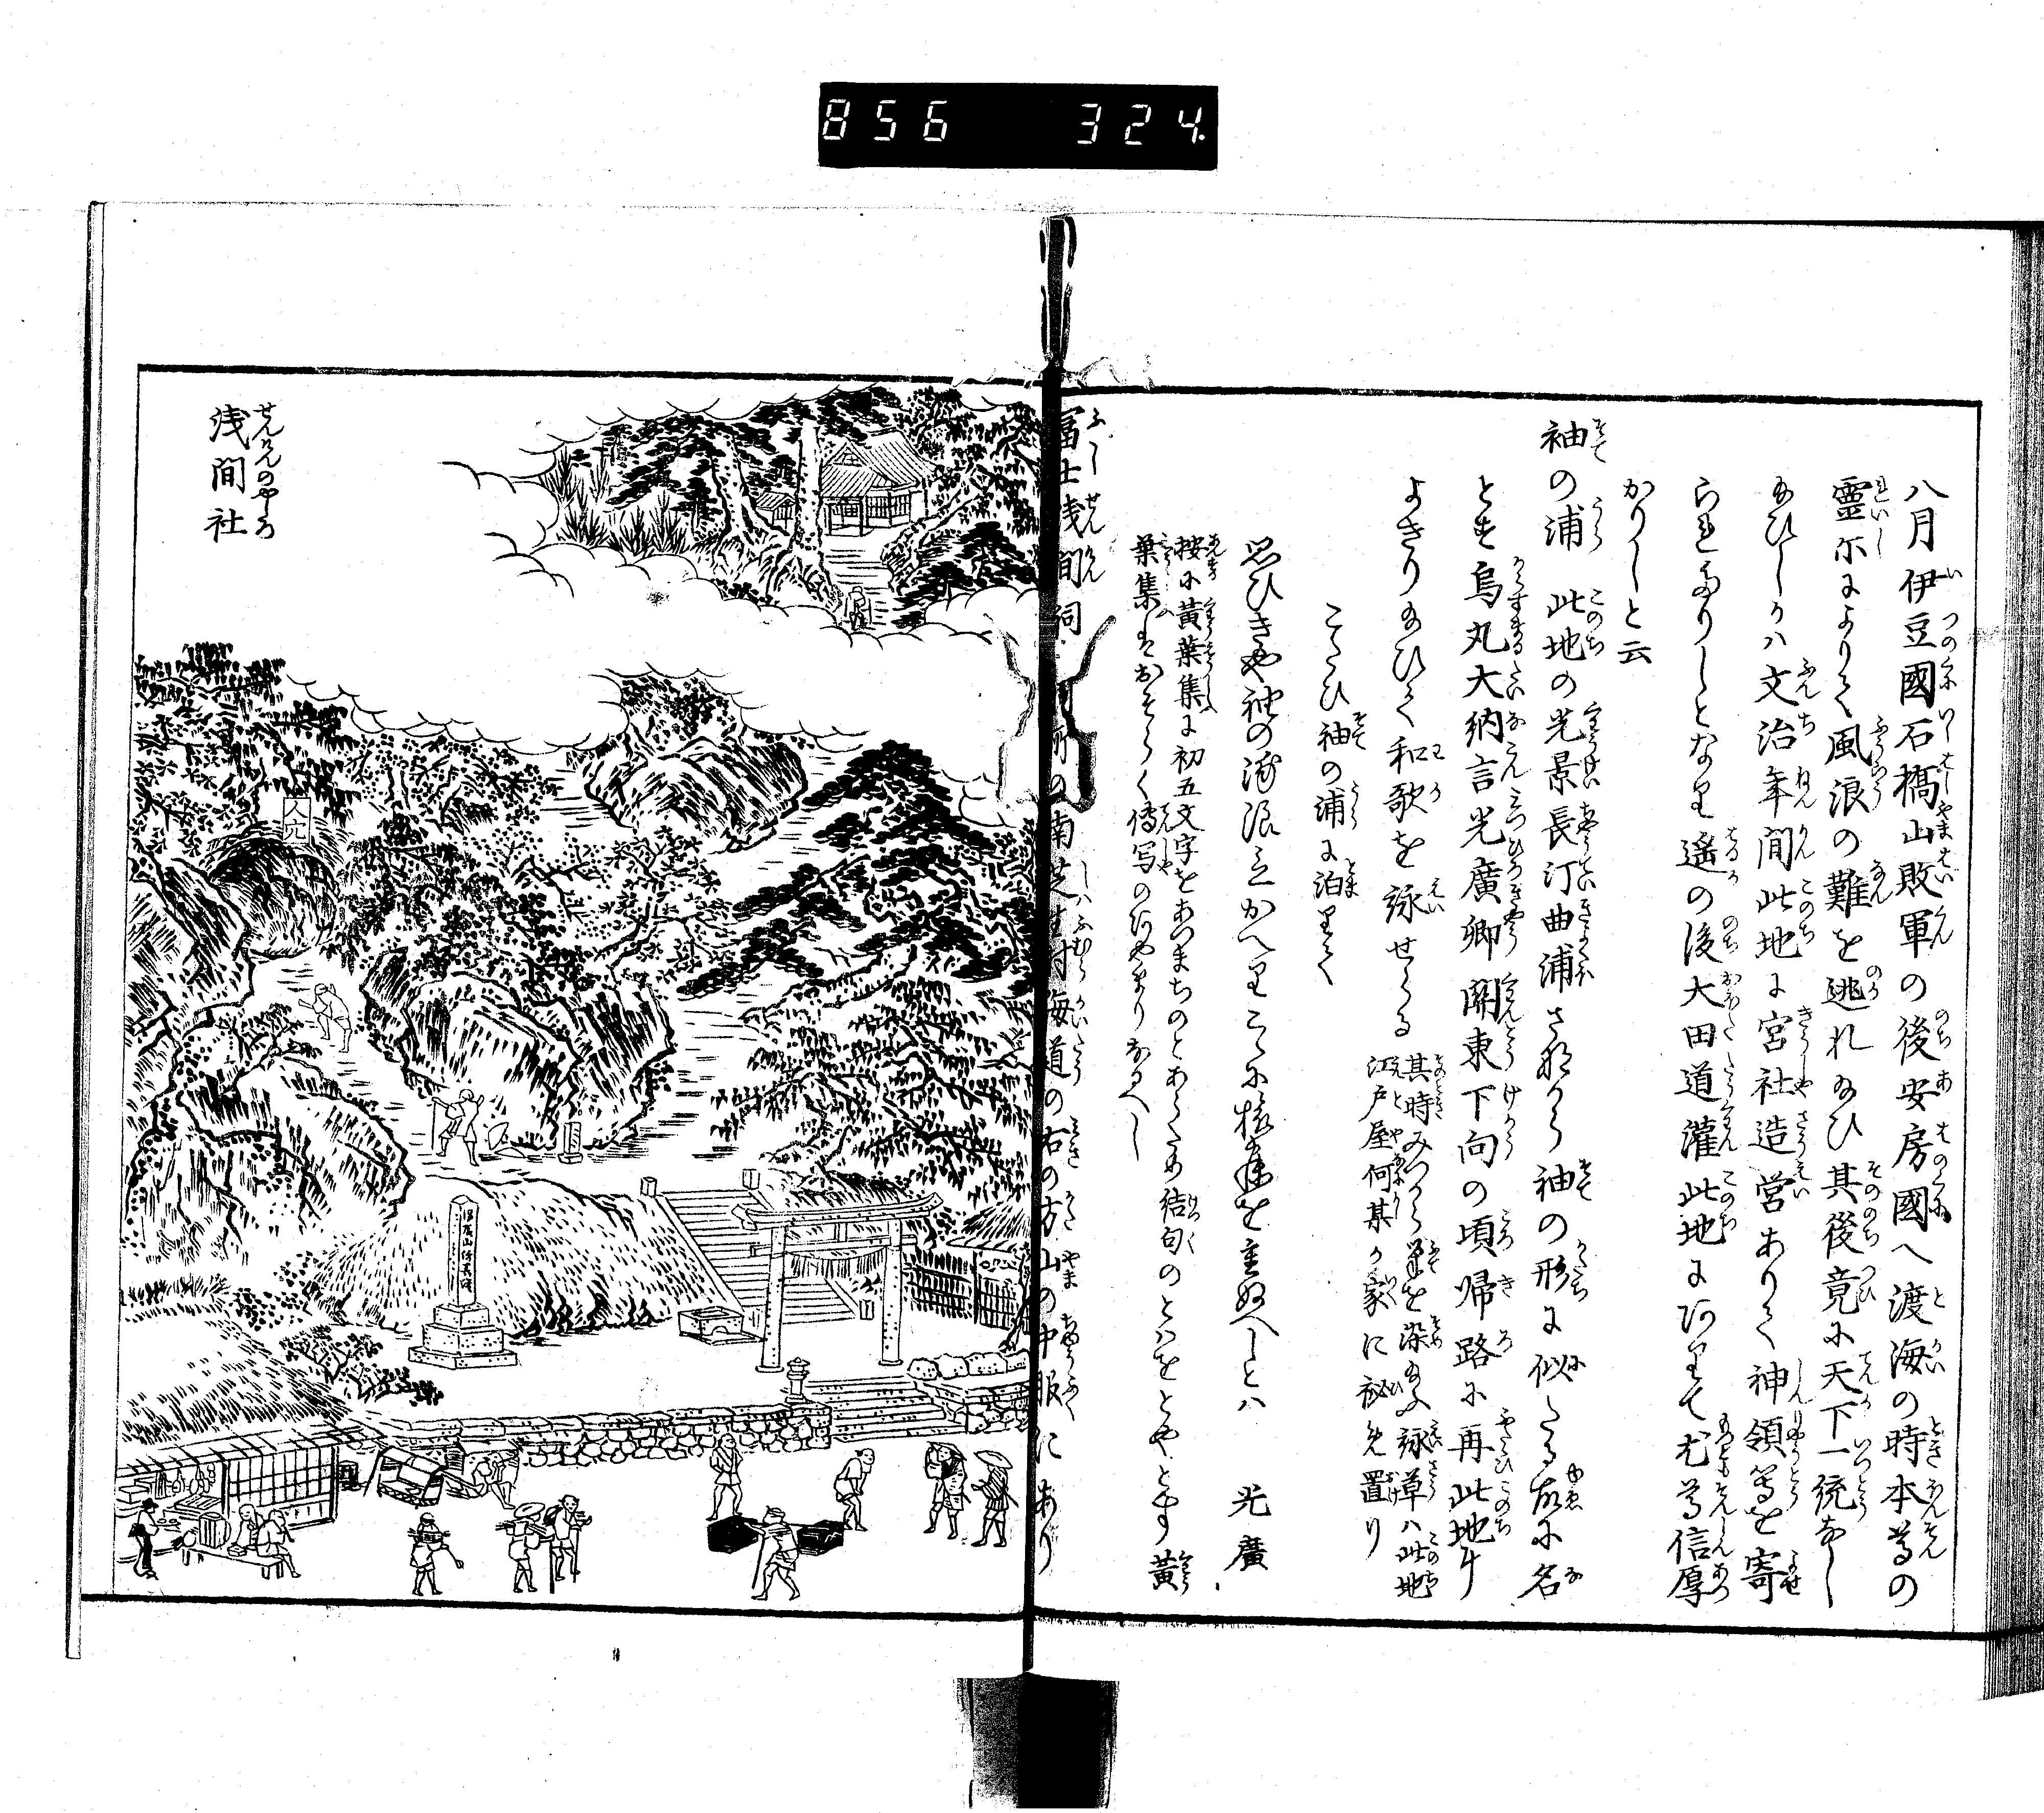 856 324
八月伊豆國石橋山敗軍の後安房國へ渡海の時本尊の
靈示によりて風浪の難を逃れ給ひ其後竟に天下一統なし
給ひしかハ文治年間此地に宮社造営ありて神領等を寄
られたりしとなり遙の後大田道灌此地にありて尤尊信厚
かりしと云
袖の浦 此地の光景長汀曲浦さながら袖の形に似たる故に名
とす烏丸大納言光廣卿關東下向の頃帰路に再此地に
よきり給ひて和歌を詠せらる
其時みつから筆を染給ふ詠草ハ此地
江戸屋何某か家に秘め置り
こよひ袖の浦に泊りて
思ひきや袖の浦浪立かへりこゝに旅寝を重ぬへしとハ 光廣
按に黄葉集に初五文字をあつまちのとあらため結句のとハをとやとす黄
葉集すおそらく傳写のあやまりなるへし
冨士浅間祠 同所の南芝生村海道の右の方山の中腹にあり
浅間社
せんけんのやしろ
人穴